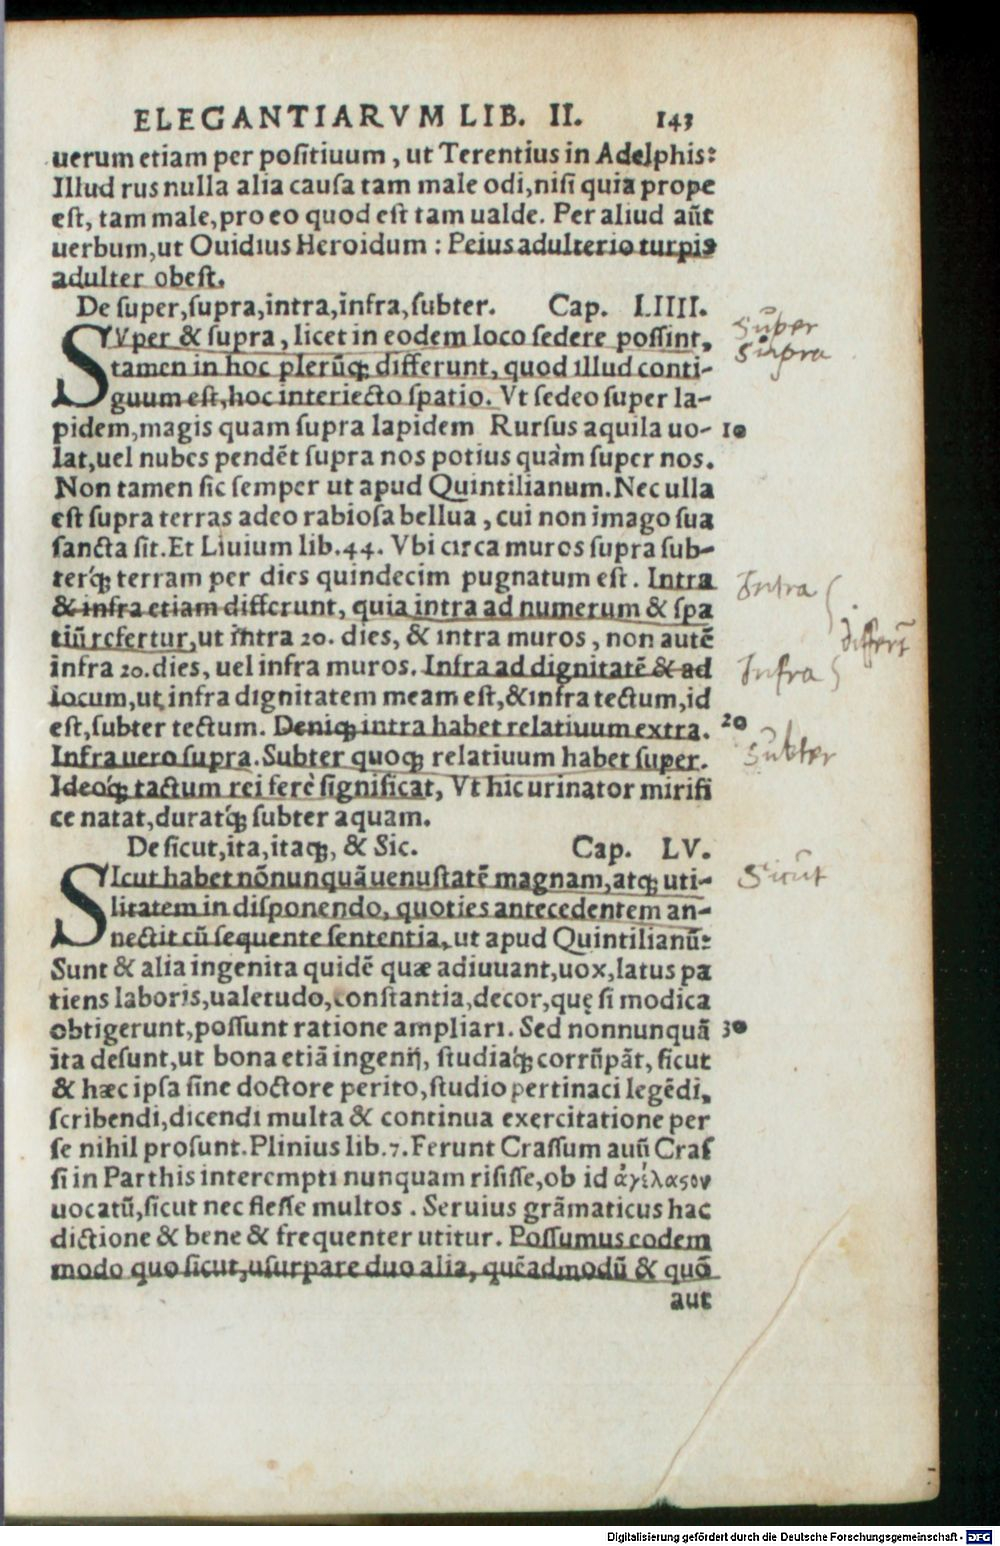 ELEGANTIARVM LIB. II. 143
uerum etiam per poſitiuum, ut Terentius in Adelphis:
Illud rus nulla alia cauſa tam male odi, niſi quia prope
eſt, tam male, pro eo quod eſt tam ualde. Per aliud aũt
uerbum, ut Ouidius Heroidum: Peius adulterio turpis
adulter obeſt.
De ſuper, ſupra, intra, infra, ſubter. Cap. LIIII.
SVper & ſupra, licet in eodem loco ſedere poſſint, super
tamen in hoc plerũq; differunt, quod illud conti- supra
guum eſt, hoc interiecto ſpatio. Vt ſedeo ſuper la-
pidem, magis quam ſupra lapidem Rurſus aquila uo- 10
lat, uel nubes pendẽt ſupra nos potius quàm ſuper nos.
Non tamen ſic ſemper ut apud Quintilianum. Nec ulla
eſt ſupra terras adeo rabioſa bellua, cui non imago ſua
ſancta ſit. Et Liuium lib. 44. Vbi circa muros ſupra ſub-
terq́; terram per dies quindecim pugnatum eſt. Intra Intra
& infra etiam differunt, quia intra ad numerum & ſpa
tiũ refertur, ut intra 20. dies, & intra muros, non autẽ differũt
infra 20. dies, uel infra muros. Infra ad dignitatẽ & ad Infra
locum, ut infra dignitatem meam eſt, & infra tectum, id
eſt, ſubter tectum. Deniq; intra habet relatiuum extra. 20
Infra uero ſupra. Subter quoq; relatiuum habet ſuper. subter
Ideoq́; tactum rei ferè ſignificat, Vt hic urinator mirifi
ce natat, duratq́; ſubter aquam.
De ſicut, ita, itaq;, & Sic. Cap. LV.
SIcut habet nõnunquã uenuſtatẽ magnam, atq; uti- Sicut
litatem in diſponendo, quoties antecedentem an-
nectit cũ ſequente ſententia, ut apud Quintilianũ:
Sunt & alia ingenita quidẽ quæ adiuuant, uox, latus pa
tiens laboris, ualetudo, conſtantia, decor, quę ſi modica
obtigerunt, poſſunt ratione ampliari. Sed nonnunquã 30
ita deſunt, ut bona etiã ingenij, ſtudiaq́; corrũpãt, ſicut
& hæc ipſa ſine doctore perito, ſtudio pertinaci legẽdi,
ſcribendi, dicendi multa & continua exercitatione per
ſe nihil proſunt. Plinius lib. 7. Ferunt Craſſum auũ Craſ
ſi in Parthis interempti nunquam riſiſſe, ob id ἀγέλαςον
uocatũ, ſicut nec fleſſe multos. Seruius grãmaticus hac
dictione & bene & frequenter utitur. Poſſumus eodem
modo quo ſicut, uſurpare duo alia, quẽadmodũ & quõ
aut
Digitalisierung gefördert durch die Deutsche Forschungsgemeinschaft - DFG